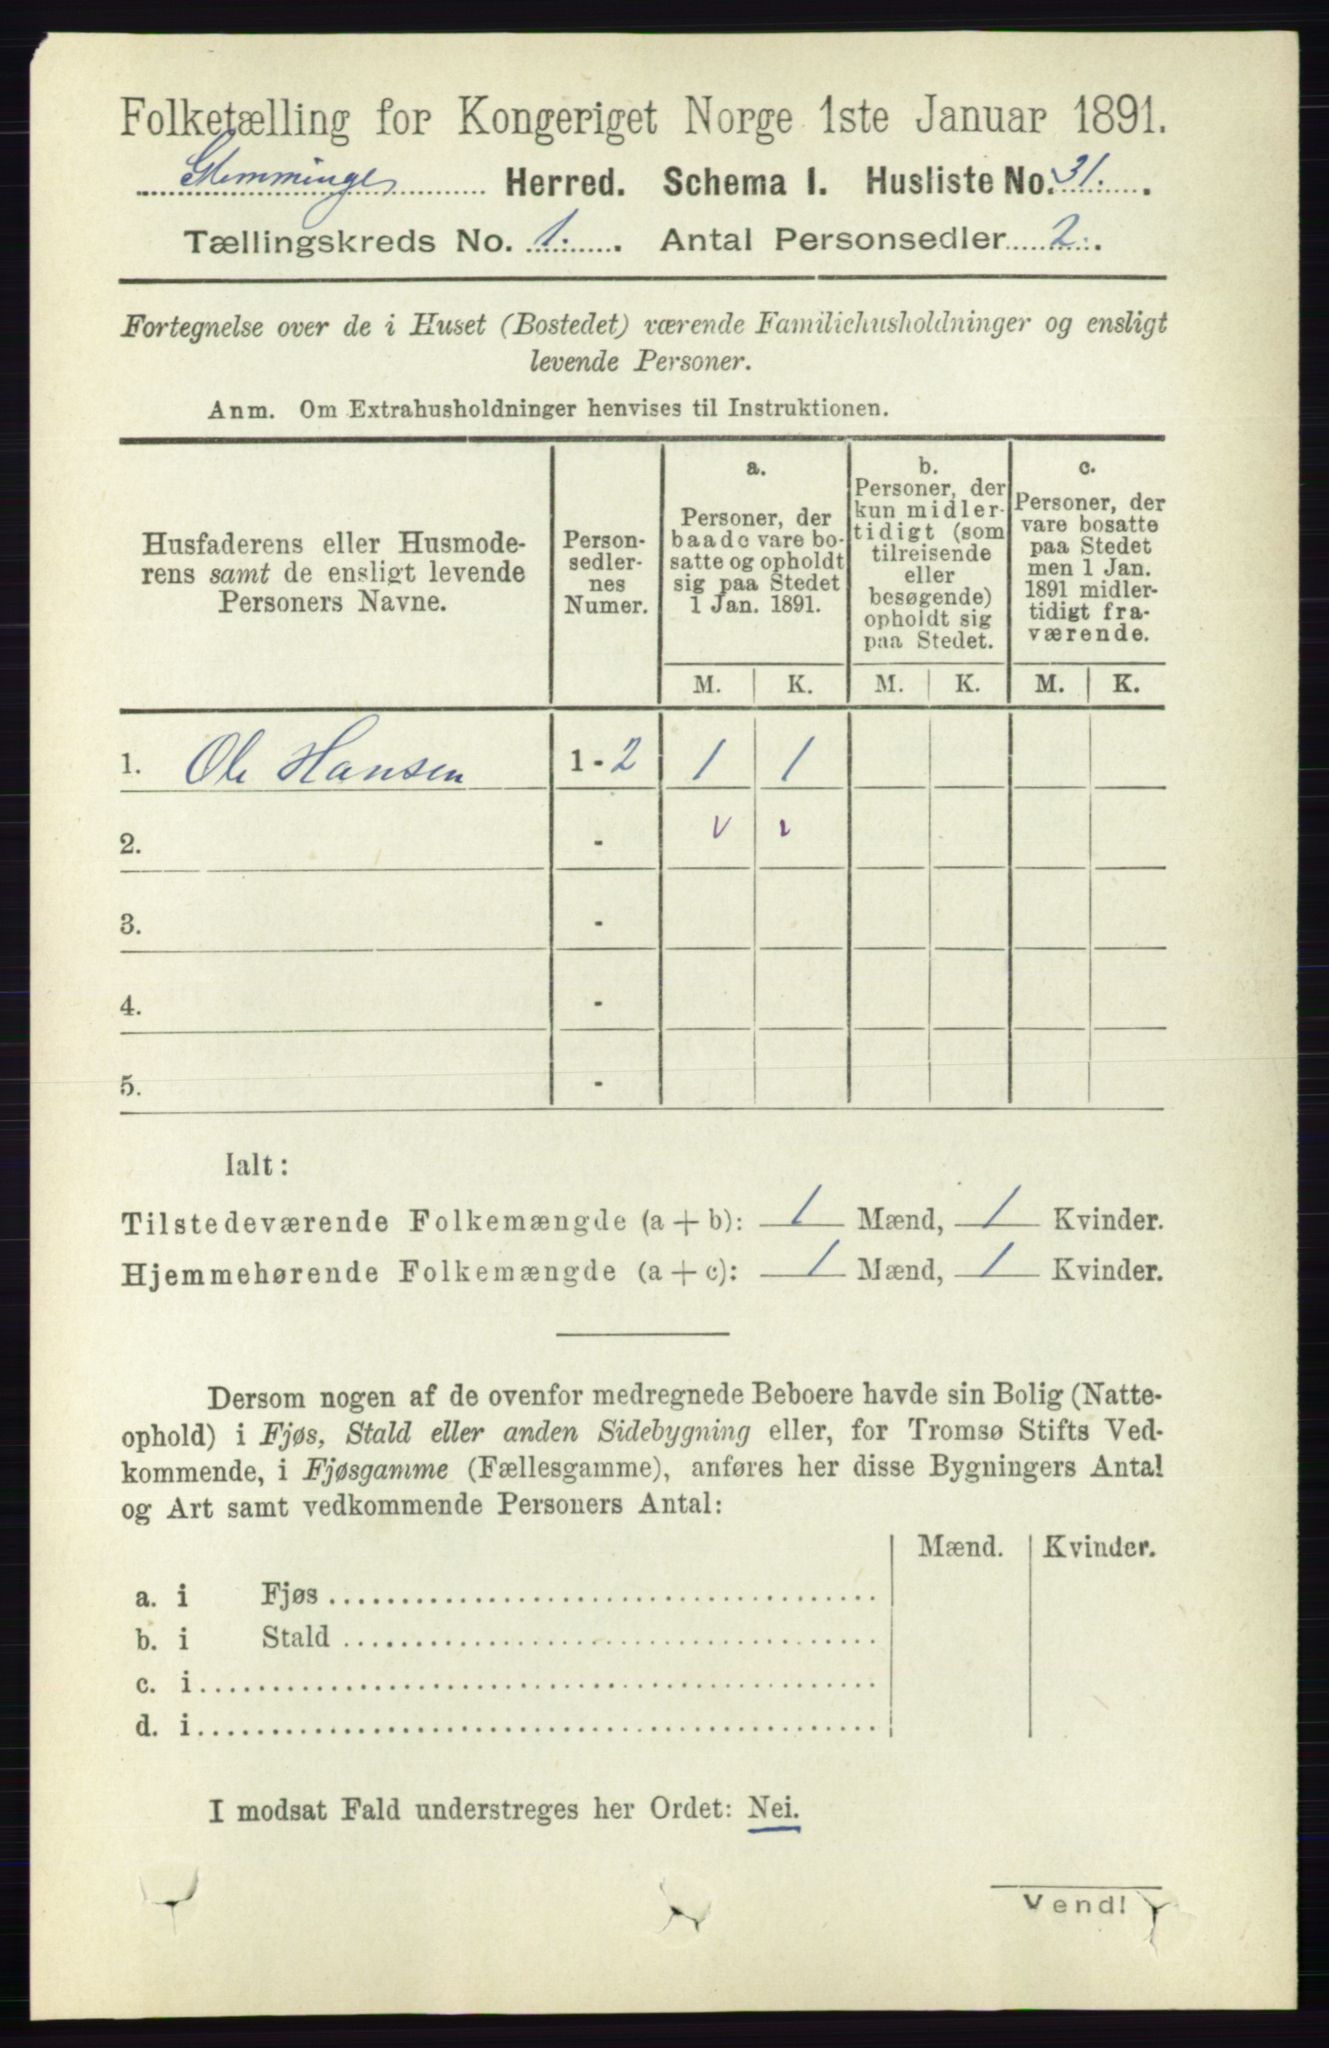 Folketælling for Kongeriget Norge 1ste Januar 1891.
Glemminge Herred. Schema I. Husliste No. 31.
Tællingskreds No. 1. Antal Personsedler 2.
Fortegnelse over de i Huset (Bostedet) værende Familiehusholdninger og ensligt
levende Personer.
Anm. Om Extrahusholdninger henvises til Instruktionen.
Husfaderens eller Husmode-
rens samt de ensligt levende
Personers Navne.
Person-
sedler-
nes
Numer.
a.
Personer, der
baade vare bo-
satte og opholdt
sig paa Stedet
1 Jan. 1891.
b.
Personer, der
kun midler-
tidigt (som
tilreisende
eller
besøgende)
opholdt sig
paa Stedet.
c.
Personer, der
vare bosatte
paa Stedet
men 1 Jan.
1891 midler-
tidigt fra-
værende.
M. K. M. K. M. K.
1. Ole Hansen 1 - 2 1 1
2. -
3. -
4. -
5. -
Ialt:
Tilstedeværende Folkemængde (a + b): 1 Mænd, 1 Kvinder.
Hjemmehørende Folkemængde (a + c): 1 Mænd, 1 Kvinder.
Dersom nogen af de ovenfor medregnede Beboere havde sin Bolig (Natte-
ophold) i Fjøs, Stald eller anden Sidebygning eller, for Tromsø Stifts Ved-
kommende, i Fjøsgamme (Fællesgamme), anføres her disse Bygningers Antal
og Art samt vedkommende Personers Antal:
Mænd. Kvinder.
a. i Fjøs
b. i Stald
c. i
d. i
I modsat Fald understreges her Ordet: Nei.
Vend!